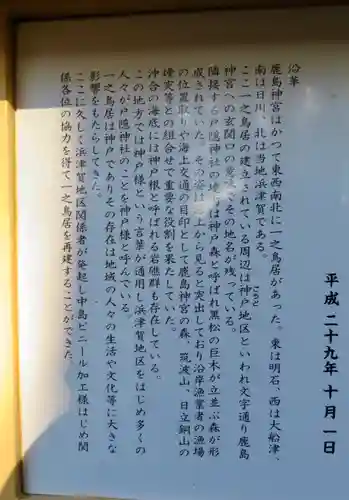 沿革
鹿島神宮はかつて東西南北に一之鳥居があった。東は明石、西は大船津、
南は日川、北は当地浜津賀である。
ここ一之鳥居の建立されている周辺は神戸地区といわれ文字通り鹿島
ごうど
神宮への玄関口の意味でその地名が残っている。
隣接する戸隠神社の地内は神戸森と呼ばれ黒松の巨木が立並ぶ森が形
成されていた。その姿は海上から見ると突出しており沿岸漁業者の漁場
の位置取りや海上交通の目印として鹿島神宮の森、筑波山、日立銅山の
煙突等との組合せで重要な役割を果たしていた。
沖合の海底には神戸根と呼ばれる岩礁群も存在している。
この地方では神戸様という言葉が通用し浜津賀地区をはじめ多くの
人々が戸隠神社のことを神戸様と呼んでいる。
一之鳥居は神戸でありその存在は地域の人々の生活や文化等に大きな
影響をもたらしてきた。
ここに久しく浜津賀地区関係者が発起し中島ビニール加工様はじめ関
係各位の協力を得て一之鳥居を再建することができた。
平成二十九年十月一日